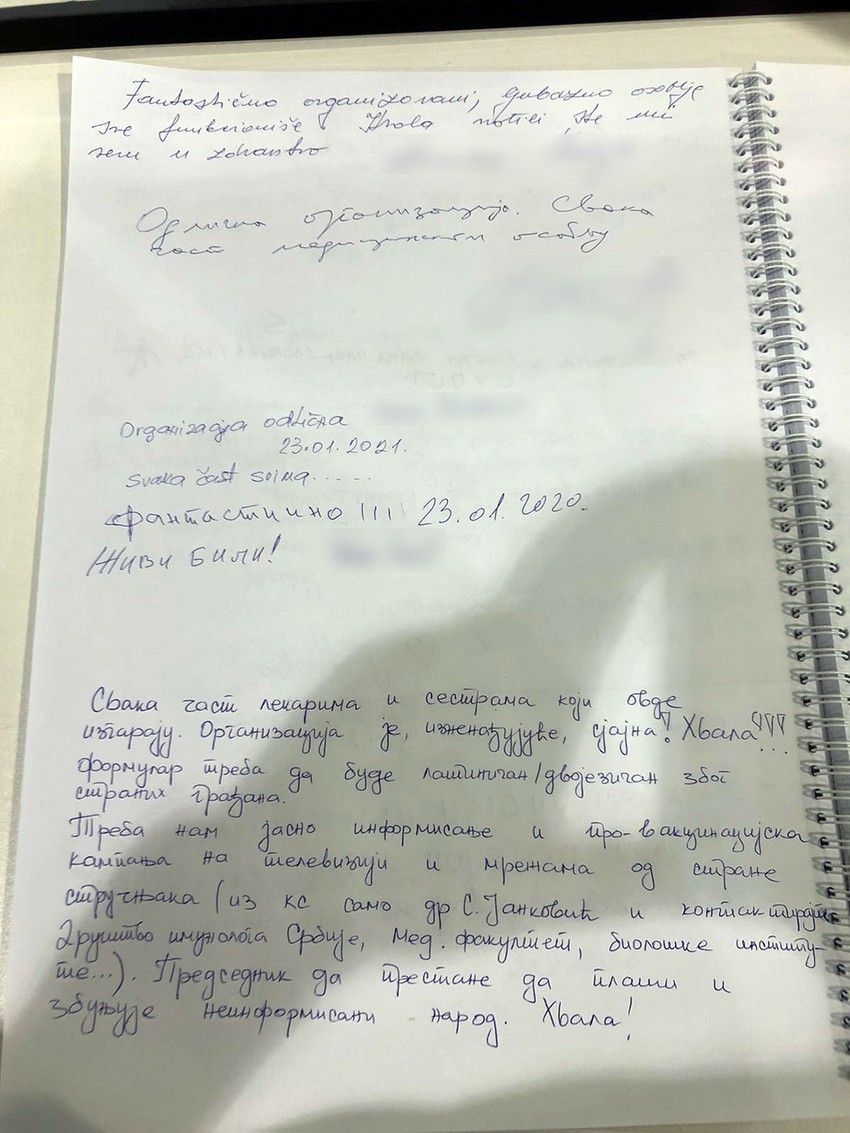 Fantastično organizovani, ljubazno osoblje
sve funkcioniše Hvala
sem u zdravstvo
Одлична организација. Свака
част медицинском особљу
Organizacija odlična
23.01.2021.
svaka čast svima......
фантастично !!!! 23.01.2020.
Живи били!
Свака част лекарима и сестрама који овде
изгарају. Организација је, изненађујуће, сјајна! Хвала!!!
формулар треба да буде латиничан/двојезичан због
страних грађана.
Треба нам јасно информисање и про-вакцинацијска
кампања на телевизији и мрежама од стране
стручњака (из КС само др С. Јанковић и контактирајте
Друштво имунолога Србије, Мед. факултет, биолошке институ-
те...). Председник да престане да плаши и
збуњује неинформисани народ. Хвала!